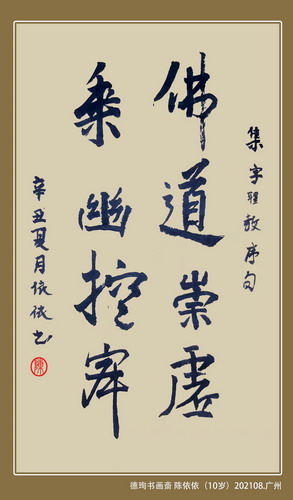 集字聖教序句
佛道崇虛
乘幽控寂
辛丑夏月依依書
陳
德珣书画斋 陈依依（10岁）202108.广州